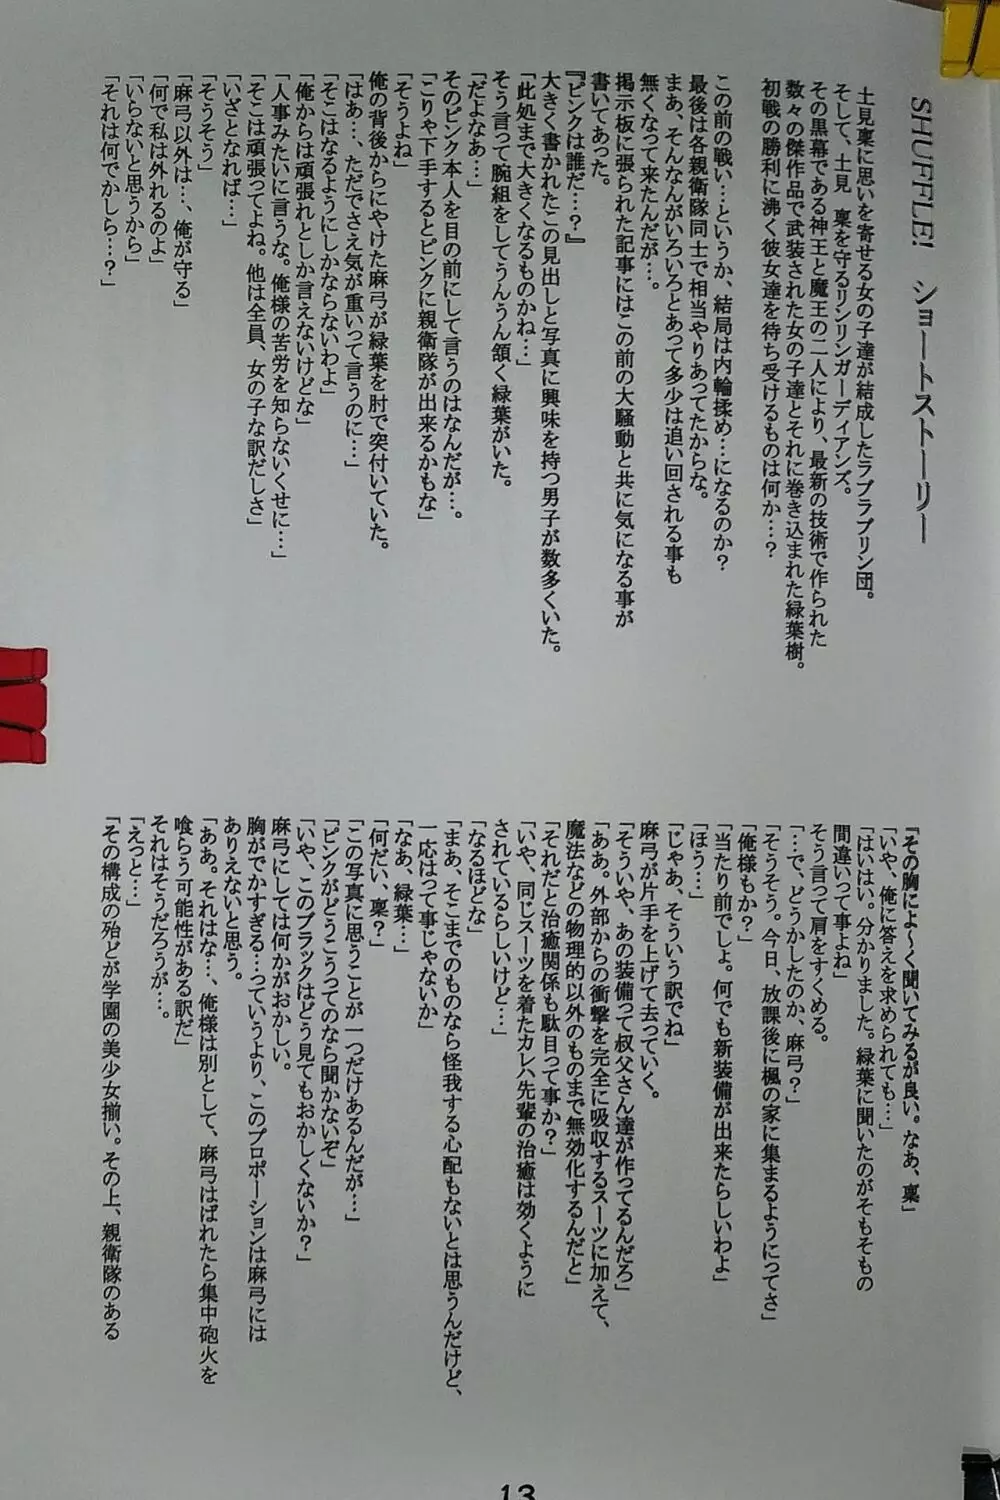 SHUFFLE! ショートストーリー
土見稟に思いを寄せる女の子達が結成したラブラブリン団。
そして、土見 稟を守るリンリンガーディアンズ。
その黒幕である神王と魔王の二人により、最新の技術で作られた
数々の傑作品で武装された女の子達とそれに巻き込まれた緑葉樹。
初戦の勝利に沸く彼女達を待ち受けるものは何か…？
この前の戦い…というか、結局は内輪揉め…になるのか？
最後は各親衛隊同士で相当やりあってたからな。
まあ、そんなんがいろいろとあって多少は追い回される事も
無くなって来たんだが…。
掲示板に張られた記事にはこの前の大騒動と共に気になる事が
書いてあった。
『ピンクは誰だ…？』
大きく書かれたこの見出しと写真に興味を持つ男子が数多くいた。
「此処まで大きくなるものかね…」
そう言って腕組をしてうんうん頷く緑葉がいた。
「だよなあ…」
そのピンク本人を目の前にして言うのはなんだが…。
「こりゃ下手するとピンクに親衛隊が出来るかもな」
「そうよね」
俺の背後からにやけた麻弓が緑葉を肘で突付いていた。
「はあ…、ただでさえ気が重いって言うのに…」
「そこはなるようにしかならないわよ」
「俺からは頑張れとしか言えないけどな」
「人事みたいに言うな。俺様の苦労を知らないくせに…」
「そこは頑張ってよね。他は全員、女の子な訳だしさ」
「いざとなれば…」
「そうそう」
「麻弓以外は…、俺が守る」
「何で私は外れるのよ」
「いらないと思うから」
「それは何でかしら…？」
『その胸によ～く聞いてみるが良い。なあ、稟」
「いや、俺に答えを求められても…」
「はいはい。分かりました。緑葉に聞いたのがそもそもの
間違いって事よね」
そう言って肩をすくめる。
「…で、どうかしたのか、麻弓？」
「そうそう。今日、放課後に楓の家に集まるようにってさ」
「俺様もか？」
「当たり前でしょ。何でも新装備が出来たらしいわよ」
「ほう…」
「じゃあ、そういう訳でね」
麻弓が片手を上げて去っていく。
「そういや、あの装備って叔父さん達が作ってるんだろ」
「ああ。外部からの衝撃を完全に吸収するスーツに加えて、
魔法などの物理的以外のものまで無効化するんだと」
「それだと治癒関係も駄目って事か？」
「いや、同じスーツを着たカレハ先輩の治癒は効くように
されているらしいけど…」
「なるほどな」
「まあ、そこまでのものなら怪我する心配もないとは思うんだけど、
一応はって事じゃないか」
「なあ、緑葉…」
「何だい、稟？」
「この写真に思うことが一つだけあるんだが…」
「ピンクがどうこうってのなら聞かないぞ」
「いや、このブラックはどう見てもおかしくないか？」
麻弓にしては何かがおかしい。
胸がでかすぎる…っていうより、このプロポーションは麻弓には
ありえないと思う。
「ああ。それはな…、俺様は別として、麻弓はばれたら集中砲火を
喰らう可能性がある訳だ」
それはそうだろうが…。
「えっと…」
「その構成の殆どが学園の美少女揃い。その上、親衛隊のある
13